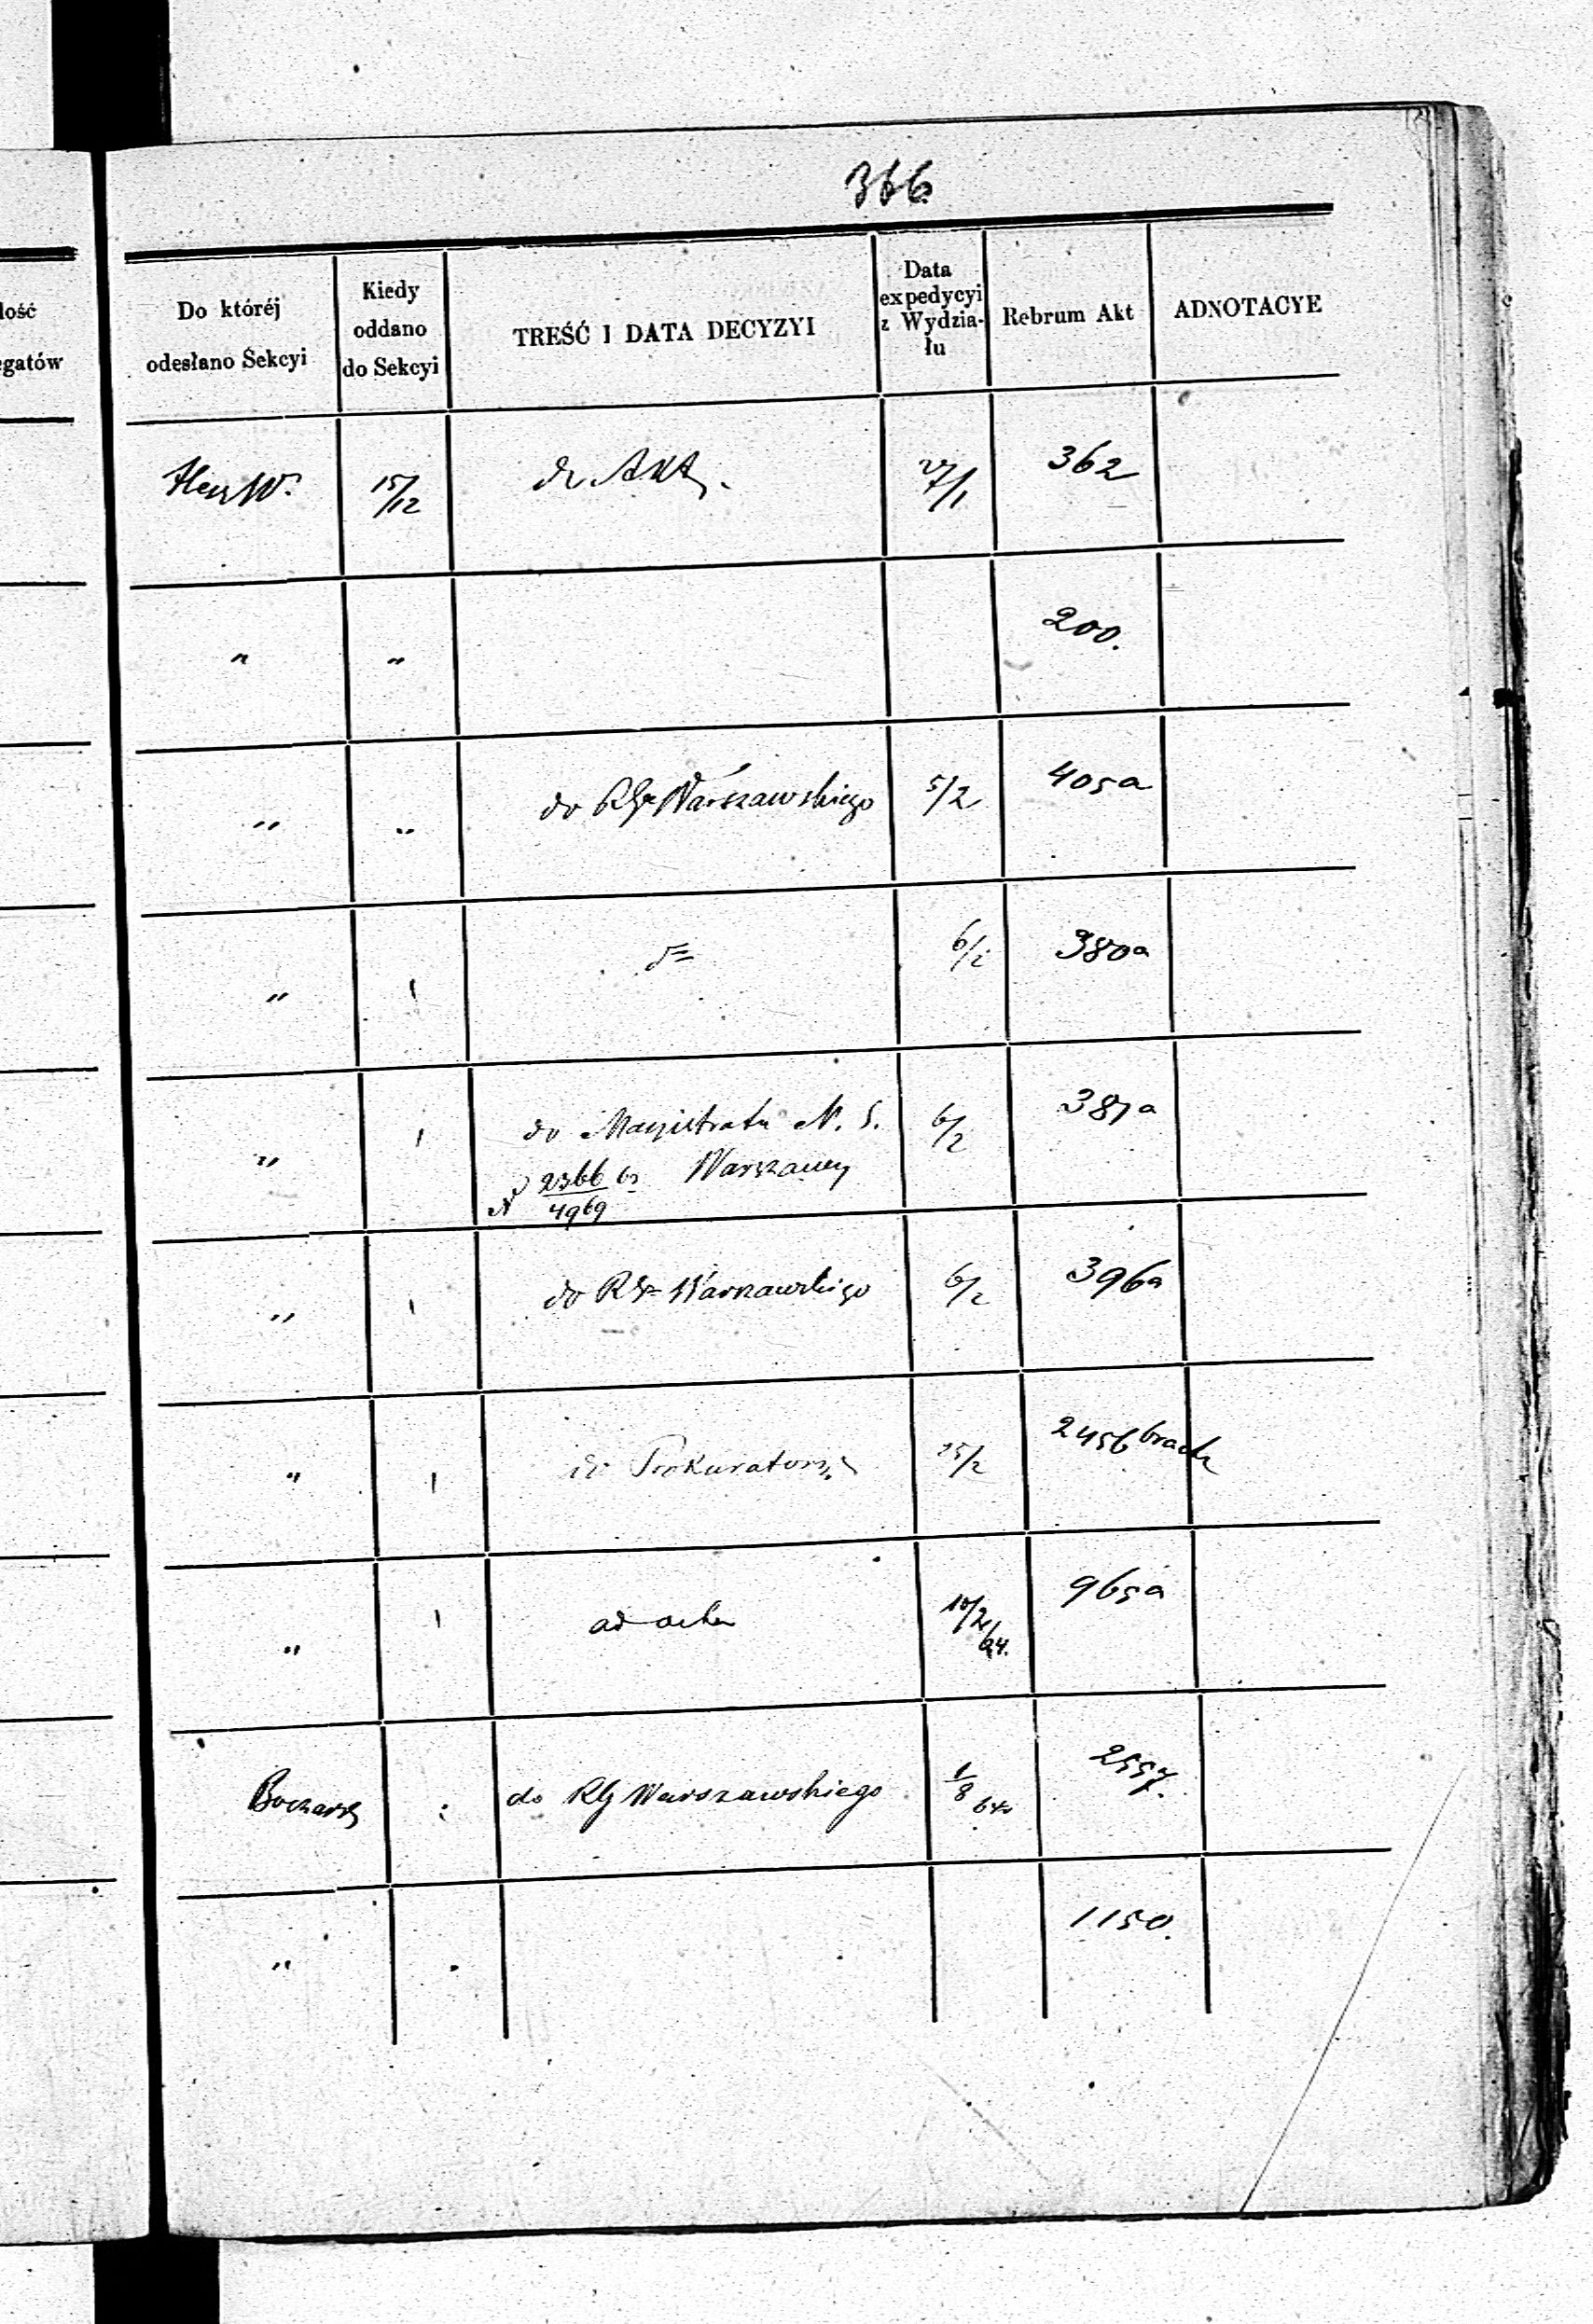 366
lość
egatów
Do któréj
odesłano Sekcyi
Kiedy
oddano
do Sekcyi
TREŚĆ I DATA DECYZYI
Data
expedycyi
z Wydzia-
łu
Rebrum Akt
ADNOTACYE
15/12
do Akt
27/1
362
"
"
200.
"
"
do RG Warszawskiego
5/2
405a
"
6/2
380a
"
do Magistratu M. S.
Warszawy
№ 2366/4969
6/2
381a
"
do RG Warszawskiego
6/2
396a
"
do Prokuratoryi
25/2
2456 brach
"
ad acta
10/2 64.
965a
do RG Warszawskiego
1/8 64
2557.
"
1150.